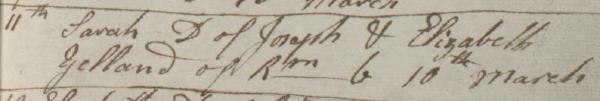 11th Sarah D of Joseph & Elizabeth
Yelland of Rm b 10th March